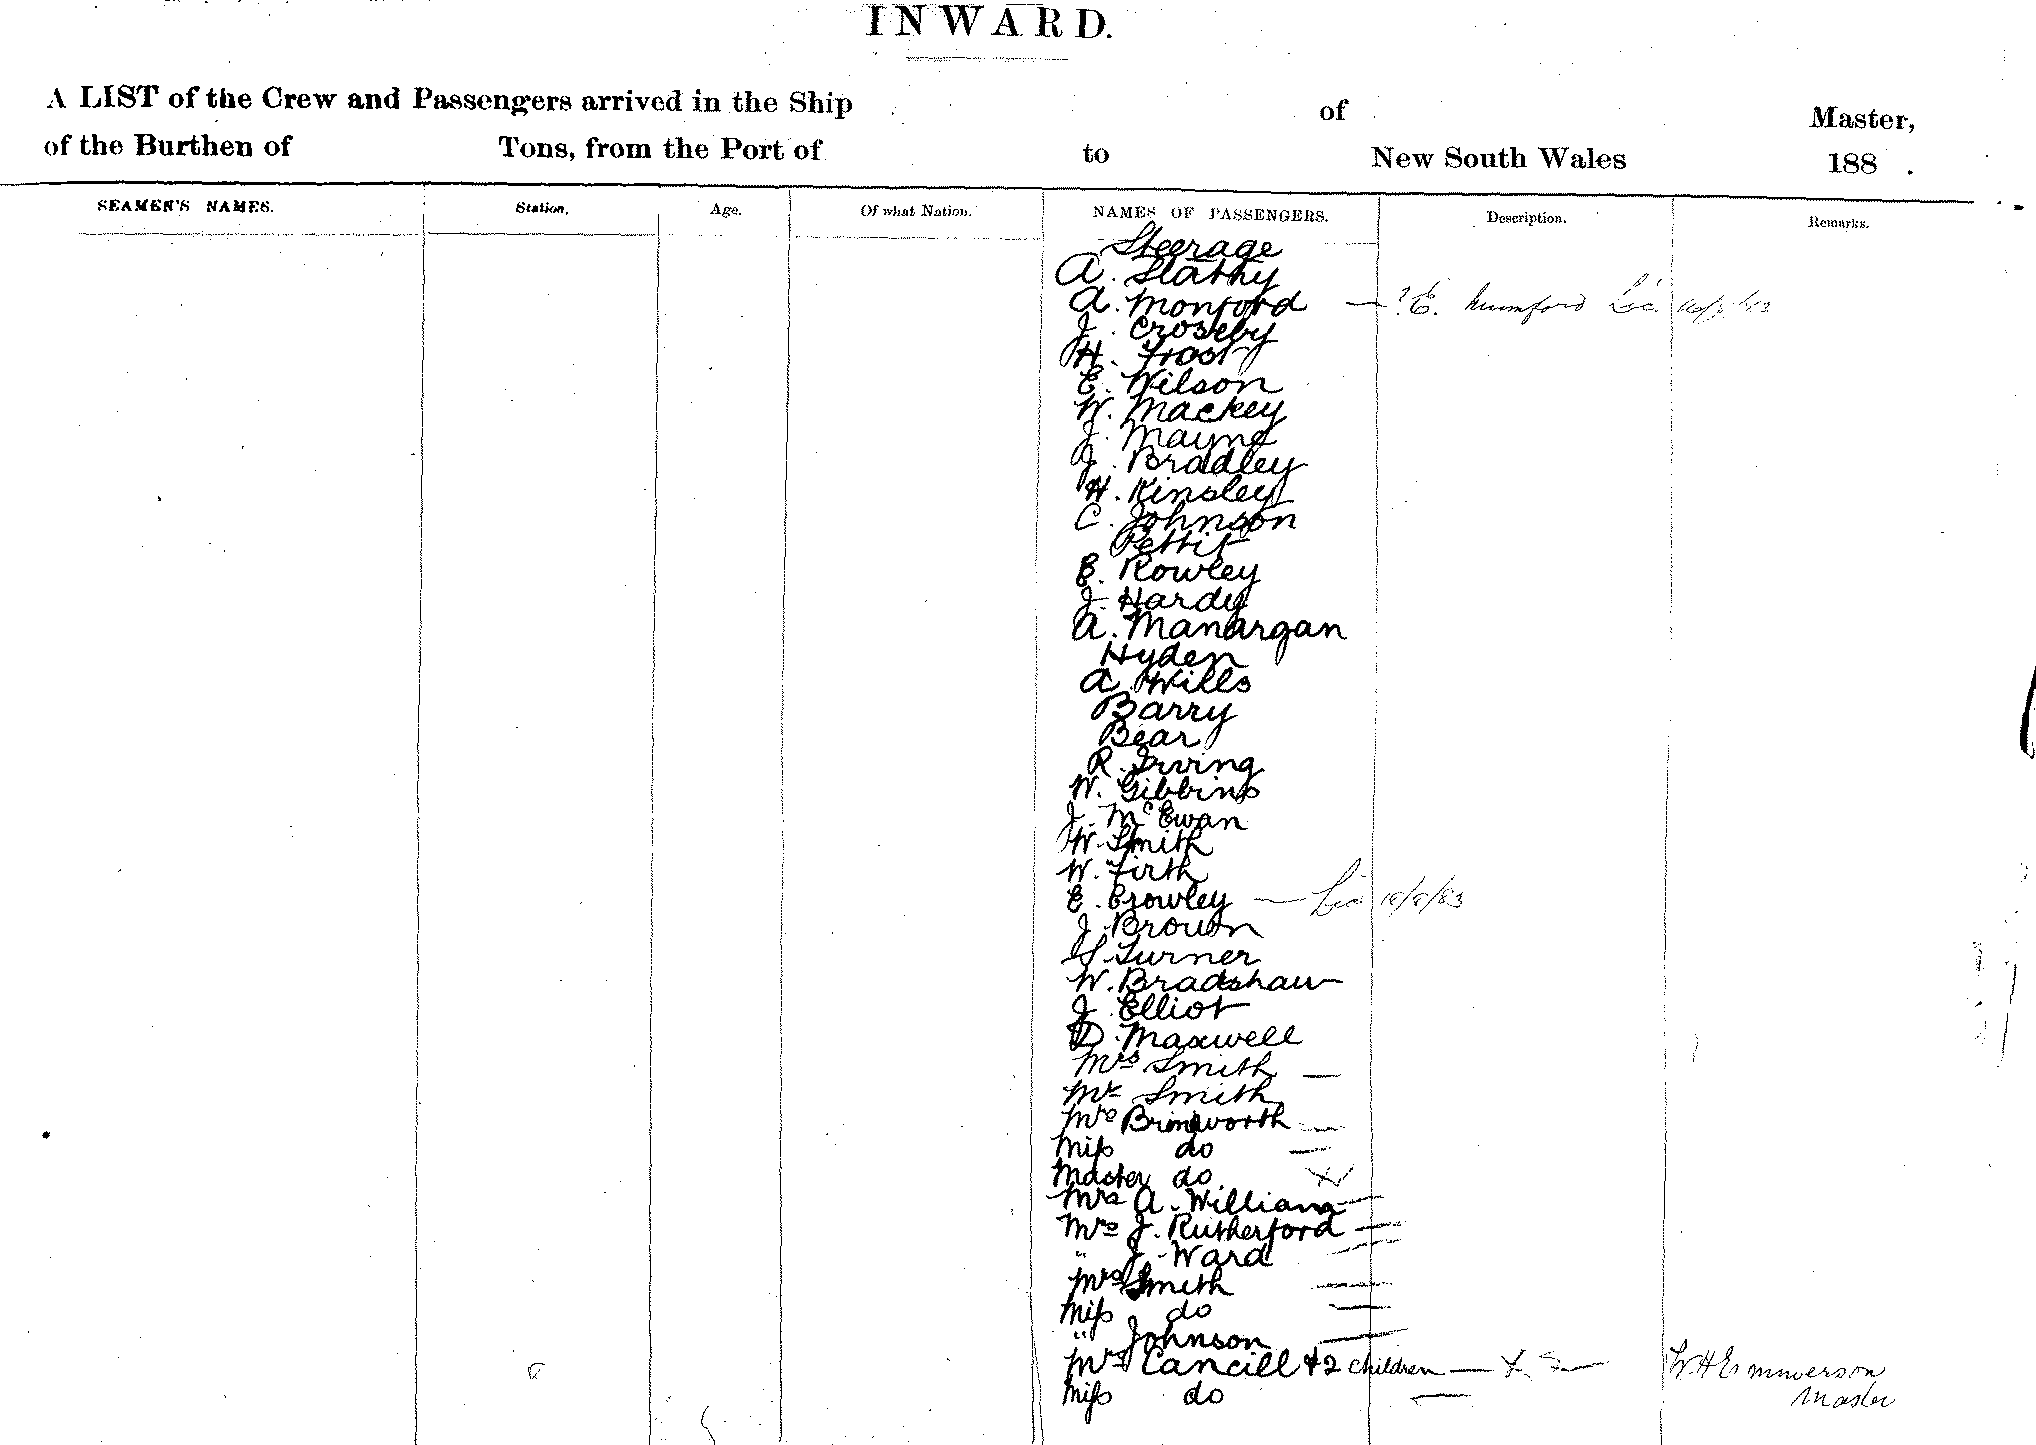 INWARD.
A LIST of the Crew and Passengers arrived in the Ship of Master,
of the Burthen of Tons, from the Port of to New South Wales 188 .
SEAMEN'S NAMES. Station. Age. Of what Nation. NAMES OF PASSENGERS. Description. Remarks.
Steerage
A. Slathy
A. Monford — ? E. Mumford Lic.
J. Croseby
H. Frost
E. Wilson
W. Mackey
J. Mayne
J. Bradley
H. Kinsley
C. Johnson
Pettit
E. Rowley
J. Hardy
A. Manargan
Hyden
A. Wills
Barry
Bear
R. Irving
W. Gibbins
J. McEwan
W. Smith
W. Firth
E. Crowley — Lic
J. Brown
S Turner
W. Bradshaw
J. Elliot
D. Maxwell
Mrs Smith —
Mr Smith
Mrs Brinkworth —
Miss do —
Master do
Mrs A. Williams
Mrs J. Rutherford
" J. Ward
Mrs Smith
Miss do
" Johnson
Mrs Cancill + 2 children — W H Emmerson
Miss do — Master